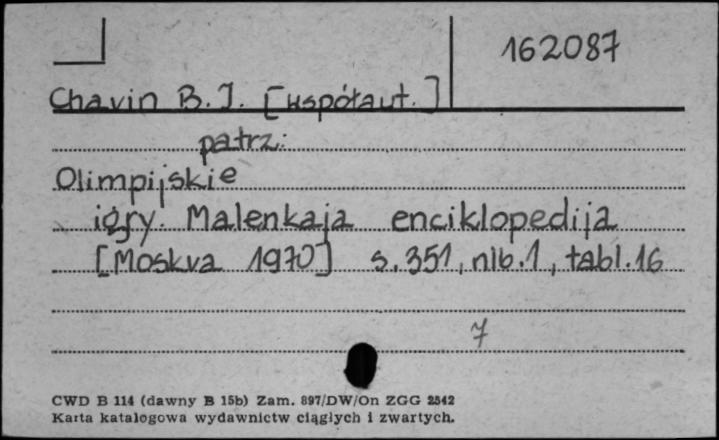 162087
Chavin B.I. [współaut.]
patrz:
Olimpijskie
igry. Malenkaja enciklopedija
[Moskva 1970] s. 351, nlb. 1, tabl. 16
7
CWD B 114 (dawny B 15b) Zam. 897/DW/On ZGG 2542
Karta katalogowa wydawnictw ciągłych i zwartych.